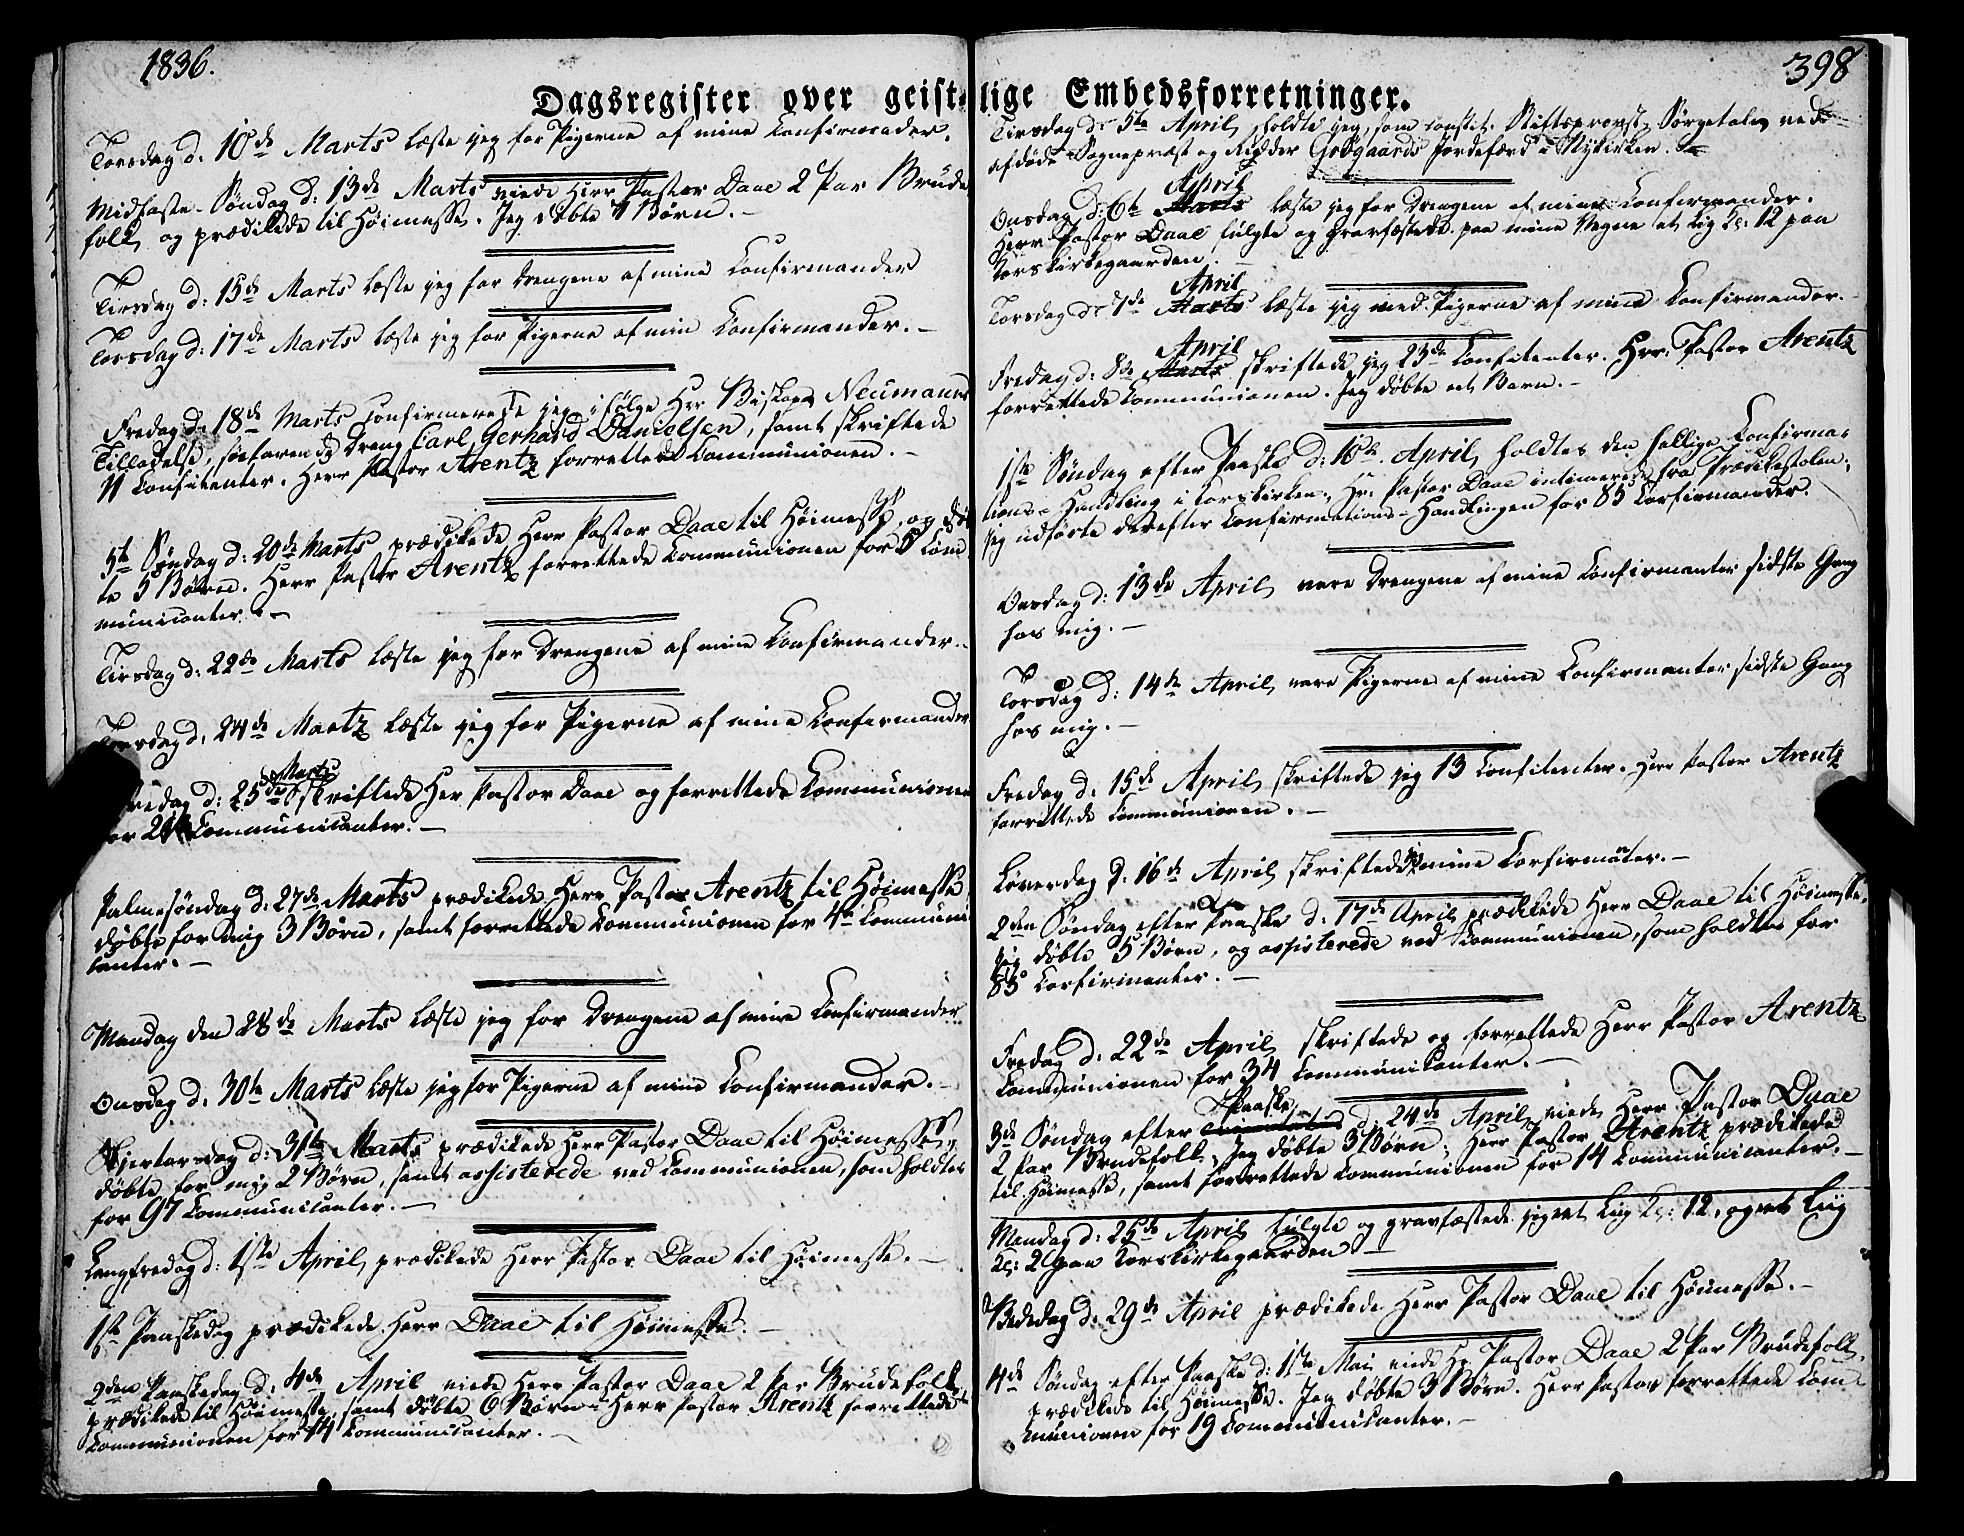 1836.
398
Dagsregister over geistlige Embedsforretninger.
Torsdag d: 10de Marts læste jeg for Pigerne af mine Confirmander.
Midfaste-Søndag d: 13de Marts viede Herr Pastor Daae 2 Par Brude
folk, og prædikede til Høimesse. Jeg døbte 7 Børn. –
Tirsdag d: 15de Marts læste jeg for Drengene af mine Confirmander
Torsdag d: 17de Marts læste jeg for Pigerne af mine Confirmander. –
Fredag d: 18de Marts confirmerede jeg, ifølge Hrr Biskop Neumanns
Tilladelse, søefarende Dreng Carl Gerhard Danielsen, samt skriftede
11 Confitenter. Herr Pastor Arentz forrettede Communionen. –
5te Søndag d: 20de Marts prædikede Herr Pastor Daae til Høimesse, og døb
te 5 Børn. Herr Pastor Arentz forrettede Communionen for 5 Com
municanter. –
Tirsdag d: 22de Marts læste jeg for Drengene af mine Confirmander. –
Torsdag d: 24de Martz læste jeg for Pigerne af mine Confirmander
Fredag d: 25de Marts skriftede Her Pastor Daae og forrettede Communionen
for 21 Communicanter. –
Palmesøndag d: 27de Marts prædikede Herr Pastor Arentz til Høimesse
døbte for mig 3 Børn, samt forrettede Communionen for 4 Communi
canter. –
Mandag den 28de Marts læste jeg for Drengene af mine Confirmander
Onsdag d: 30te Marts læste jeg for Pigerne af mine Confirmander. –
Skjertorsdag d: 31te Marts prædikede Herr Pastor Daae til Høimesse,
døbte for mig 2 Børn, samt assisterede ved Communionen, som holdtes
for 97 Communicanter. –
Langfredag d: 1ste April prædikede Herr Pastor Daae til Høimesse. –
1ste Paaskedag prædikede Herr Daae til Høimesse. –
2den Paaskedag d: 4de April viede Herr Pastor Daae 2 Par Brudefolk
prædikede til Høimesse, samt døbte 6 Børn – Herr Pastor Arentz forrettede
Communionen for 14 Communicanter. –
Tirsdag d: 5te April holdte jeg, som constit. Stiftsprovst, Sørgetalen ved
afdøde Sognepræst og Ridder Grøgaards Jordefærd i Nykirken. –
Onsdag d: 6te Marts April læste jeg for Drengene af mine Confirmander.
Herr Pastor Daae fulgte og gravfæstede paa mine Vegne et Lig Kl: 12 paa
Korskirkegaarden. –
Torsdag d: 7de Marts April læste jeg med Pigerne af mine Confirmander. –
Fredag d: 8de Marts April skriftede jeg 23de Confitenter. Hrr. Pastor Arentz
forrettede Communionen. Jeg døbte et Barn. –
1ste Søndag efter Paaske d: 10de April holdtes den hellige Confirma-
tions-Handling i Korskirken, Hr. Pastor Daae intimerede fra Prædikestolen;
jeg udførte derefter Confirmations-Handlingen for 85 Confirmander.
Onsdag d: 13de April vare Drengene af mine Confirmanter sidste Gang
hos mig. –
Torsdag d: 14de April vare Pigerne af mine Confirmanter sidste Gang
hos mig. –
Fredag d: 15de April skriftede jeg 13 Confitenter. Herr Pastor Arentz
forrettede Communionen. –
Løverdag d: 16de April skriftede jeg mine Confirmanter. –
2den Søndag efter Paaske d: 17de April prædikede Herr Daae til Høimesse.
jeg døbte 5 Børn, og assisterede ved Communionen, som holdtes for
85 Confirmanter. –
Fredag d: 22de April skriftede og forrettede Herr Pastor Arentz
Communionen for 34 Communicanter. –
3de Søndag efter Paaske d: 24de April viede Herr Pastor Daae
2 Par Brudefolk, Jeg døbte 3 Børn; Herr Pastor Arentz prædikede
til Høimesse, samt forrettede Communionen for 14 Communicanter. –
Mandag d: 25de April fulgte og gravfæstede jeg et Liig Kl: 12, og et Liig
Kl: 2 paa Korskirkegaarden –
Bededag d: 29de April prædikede Herr Pastor Daae til Høimesse. –
4de Søndag efter Paaske d: 1ste Mai viede Hr Pastor Daae 2 Par Brudefolk,
prædikede til Høimesse. Jeg døbte 3 Børn. Herr Pastor forrettede Com-
munionen for 19 Communicanter. –